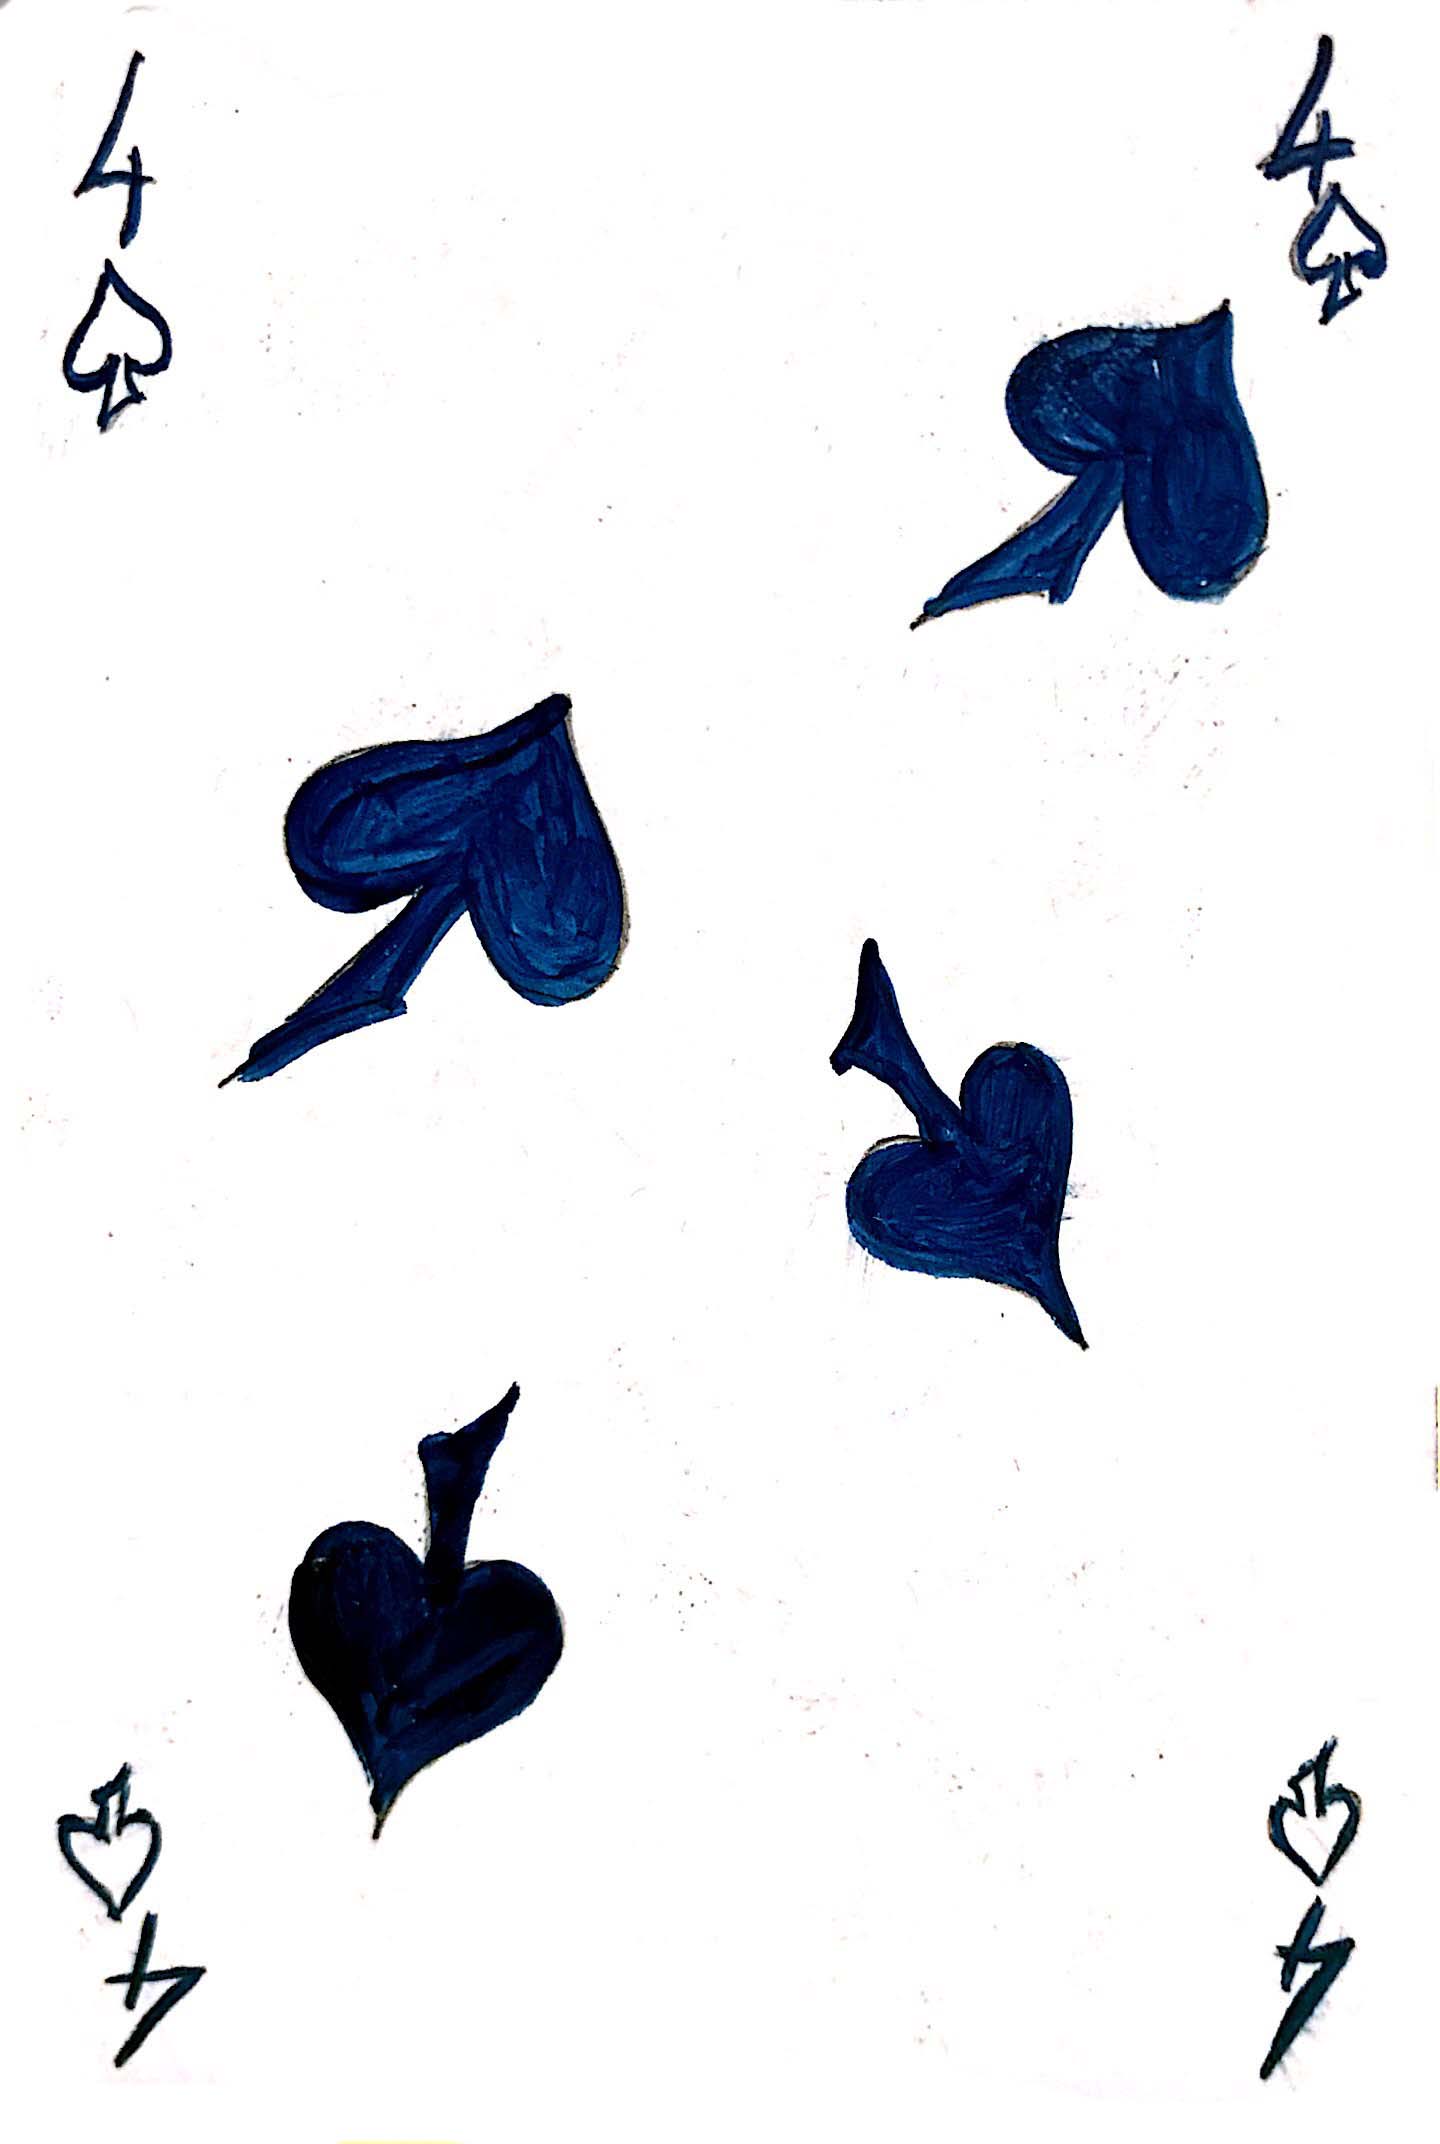 4 4
4 4